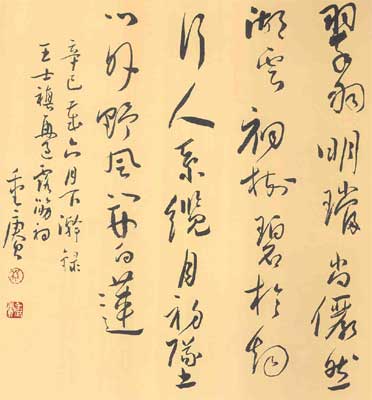 翠羽明璫尚儼然
湖雲祠樹碧於烟
行人系纜月初墜
门外野風开白蓮
辛巳年六月下澣録
王士禛再過露筋祠